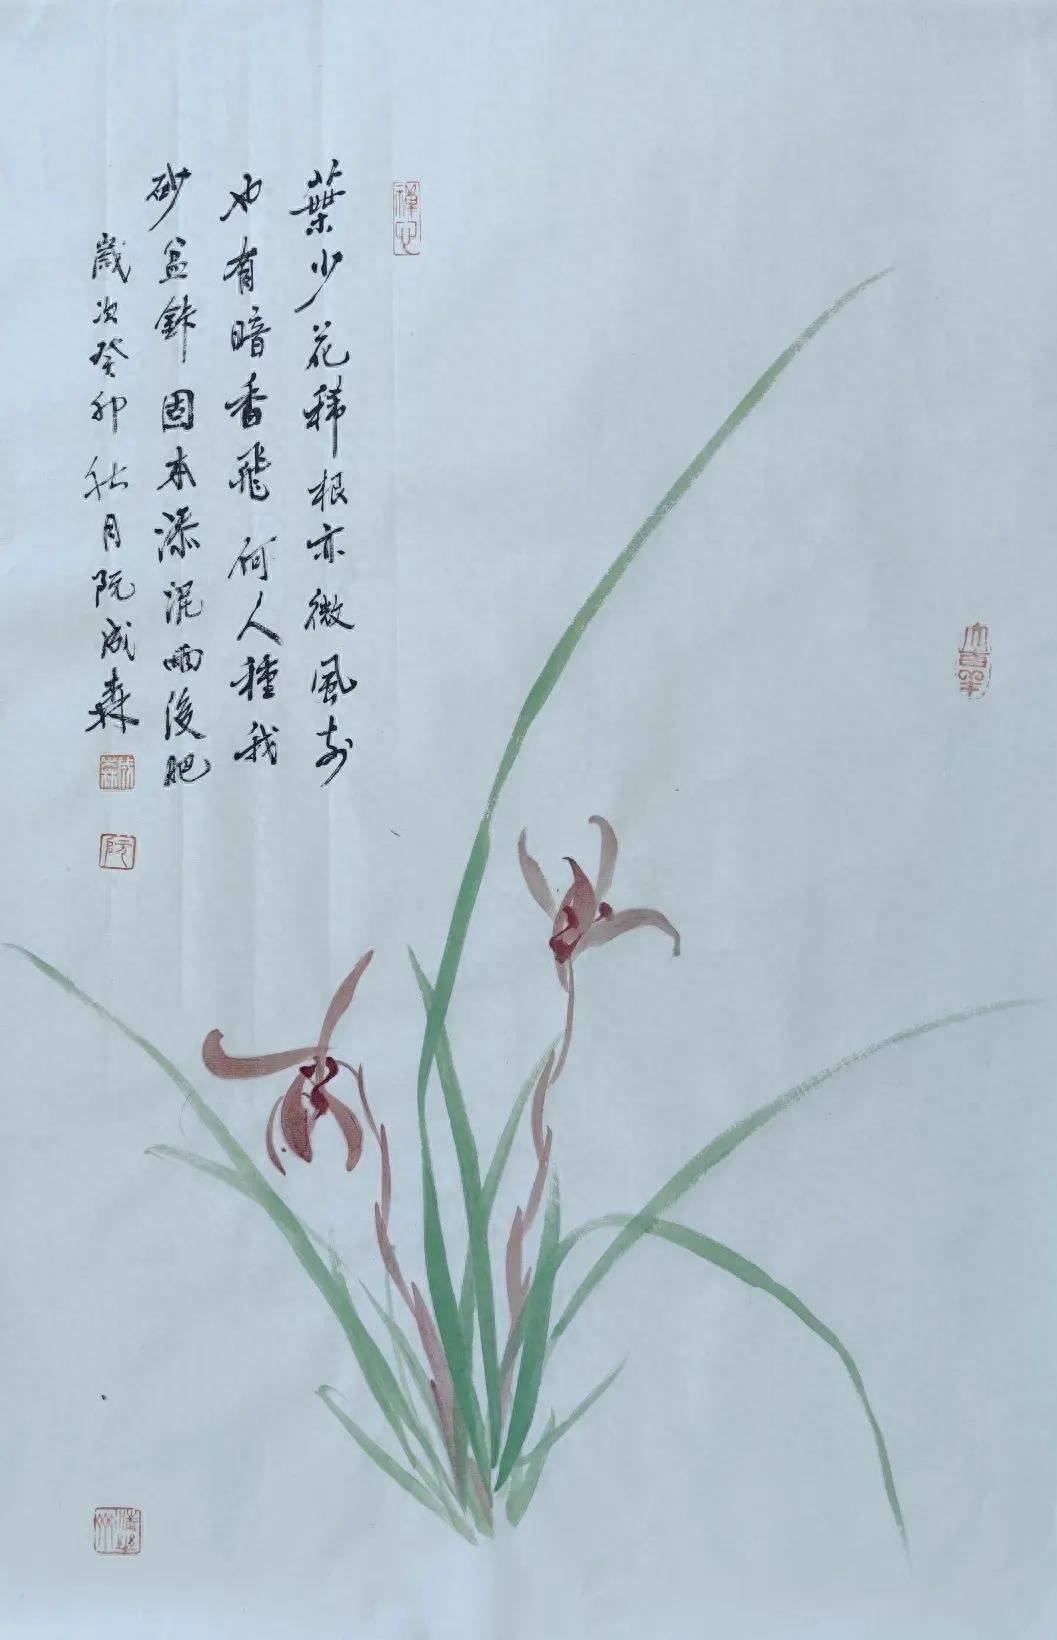 葉少花稀根亦微風前
也有暗香飛何人種我
砂盆鉢固本添泥雨後肥
歲次癸卯秋月阮成森
禪心
阮